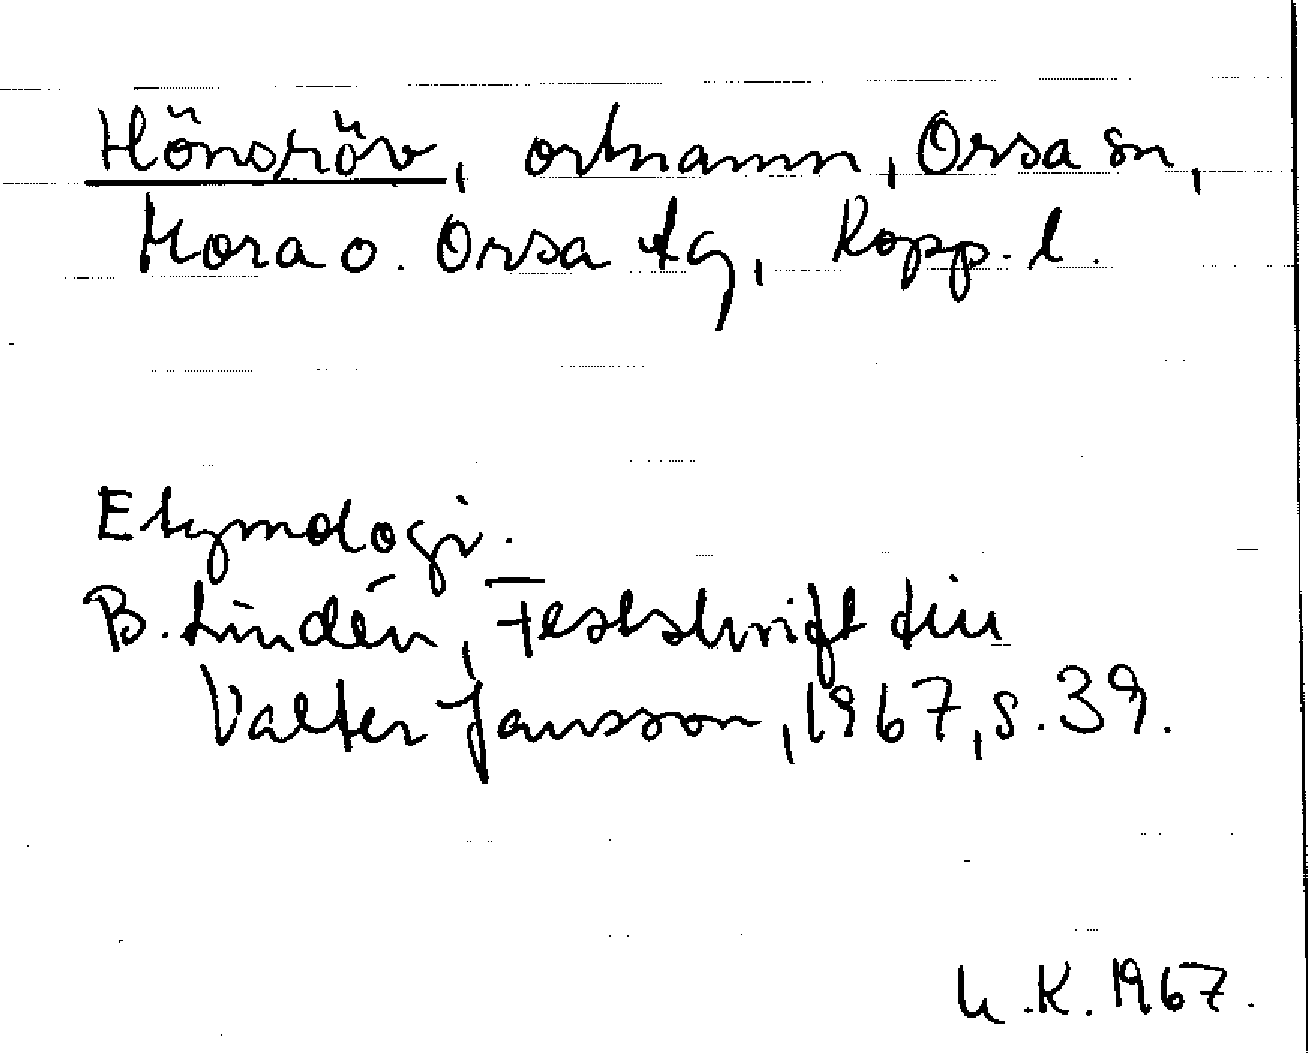 Hönsröv, ortnamn, Orsa sn,
Mora o. Orsa tg, Kopp. l.
Etymologi.
B. Lindén, Festskrift till
Valter Jansson, 1967, s. 39.
K. 1967.